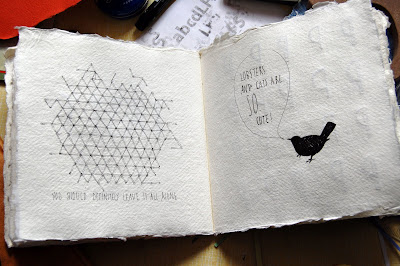 YOU SHOULD DEFINITELY LEAVE IT ALL ALONE
LOBSTERS
AND CATS ARE
SO
CUTE!